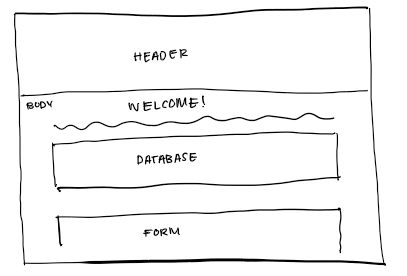 HEADER
BODY
WELCOME!
DATABASE
FORM